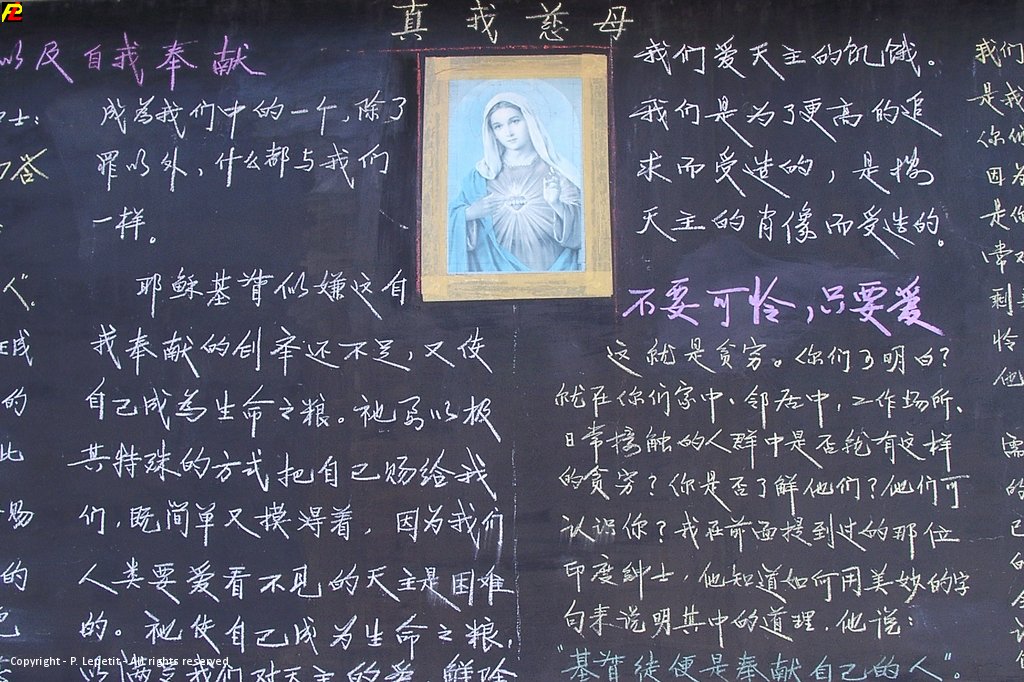 真我慈母
以及自我奉献
士：
成为我们中的一个，除了
罪以外，什么都与我们
一样。
人"。
耶稣基督似嫌这自
我奉献的创举还不足，又使
自己成为生命之粮。祂写以极
其特殊的方式把自己赐给我
们，既简单又摸得着，因为我们
人类要爱看不见的天主是困难
的。祂使自己成为生命之粮，
以满足我们对天主的爱，
的
此
赐
的
我们爱天主的饥饿。
我们是为了更高的追
求而受造的，是按
天主的肖像而受造的。
不要可怜，只要爱
这就是贫穷。你们了明白？
就在你们家中、邻居中，工作场所、
日常接触的人群中是否就有这样
的贫穷？你是否了解他们？他们可
认识你？我在前面提到过的那位
印度绅士，他知道如何用美妙的字
句来说明其中的道理．他说：
"基督徒便是奉献自己的人"。
我们
是我
你们
因为
是你
常
剩
怜
他
需
的
己
的
Copyright - P. Lepetit - All rights reserved